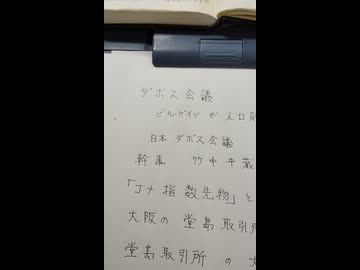 ダボス会議
ビルゲイツ が 人口
日本 ダボス会議
幹事 竹中平蔵
「コメ指数先物」と
大阪の 堂島取引所
堂島取引所 の